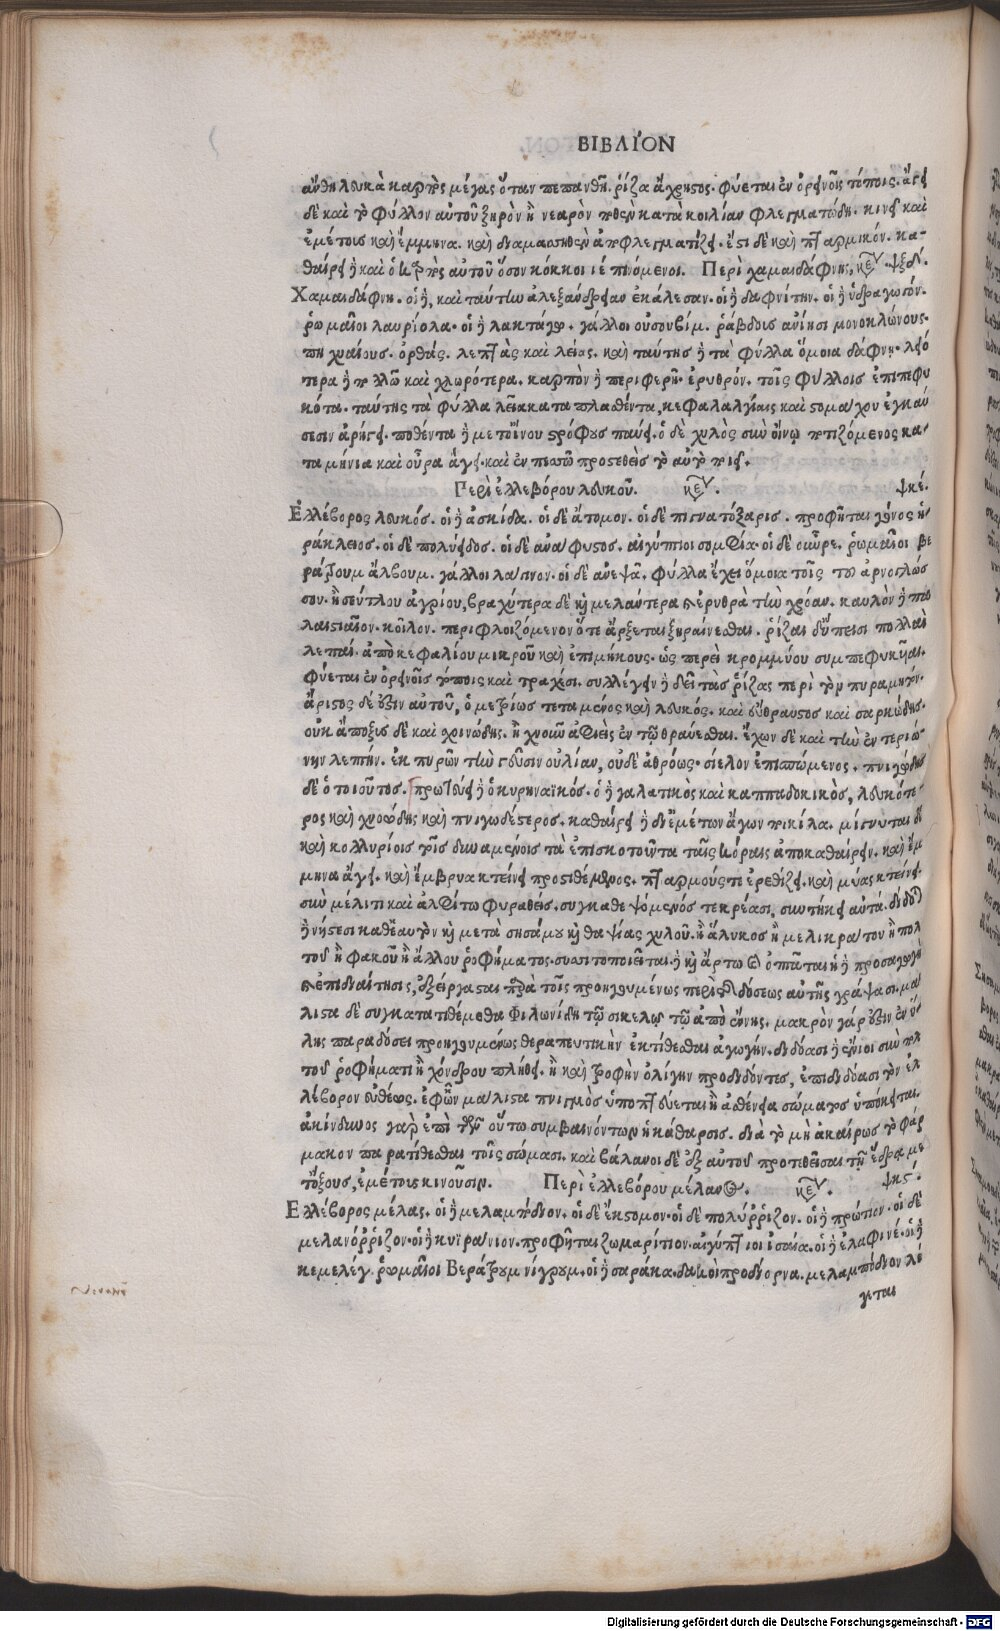 ΒΙΒΛΙΌΝ
ἄνθη λευκὰ καρπὸς μέγας ὅταν πεπανθῇ. ῥίζα ἄχρηστος. φύεται ἐν ὀρεινοῖς τόποις. ἄγει
δὲ καὶ τὸ φύλλον αὐτοῦ ξηρὸν ἢ νεαρὸν ποθὲν κατὰ κοιλίαν φλεγματώδη. κινεῖ καὶ
ἐμέτους καὶ ἔμμηνα. καὶ διαμασηθὲν ἀποφλεγματίζει. ἔστι δὲ καὶ πταρμικόν. κα-
θαίρει ἢ καὶ ὁ καρπὸς αὐτοῦ ὅσον κόκκοι ιέ πινόμενοι. Περὶ χαμαιδάφνης, κεφ. ψξδ.
Χαμαιδάφνη. οἱ ἢ, καὶ ταύτην ἀλεξάνδρειαν ἐκάλεσαν. οἱ ἢ δαφνίτην. οἱ ἢ ὑδραγωγόν.
ῥωμαῖοι λαυρίολα. οἱ ἢ λακτάγω. γάλλοι οὐσουβίμ. ῥάβδους ἀνίησι μονοκλώνους.
πηχυαίους. ὀρθάς. λεπτὰς καὶ λείας. καὶ ταύτης ἢ τὰ φύλλα ὅμοια δάφνῃ. λειό
τερα ἢ πολλῷ καὶ χλωρότερα. καρπὸν ἢ περιφερῆ. ἐρυθρόν. τοῖς φύλλοις ἐπιπεφυ
κότα. ταύτης τὰ φύλλα λεῖα καταπλασθέντα, κεφαλαλγίαις καὶ στομάχου ἐγκαύ
σεσιν ἀρήγει. ποθέντα ἢ μετ οἴνου στρόφους παύει. ὁ δὲ χυλὸς σὺν οἴνῳ ποτιζόμενος κα
ταμήνια καὶ οὖρα ἄγει. καὶ ἐν πεσσῷ προστεθεὶς τὸ αὐτὸ ποιεῖ.
Περὶ ἐλλεβόρου λευκοῦ. κεφ. ψκέ.
Ἐλλέβορος λευκός. οἱ ἢ ἀσκίδα. οἱ δὲ ἄτομον. οἱ δὲ πιγνατόξαρις. προφῆται γόνος ἡ
ράκλειος. οἱ δὲ πολύειδος. οἱ δὲ ἀνάφυστος. αἰγύπτιοι σομφία. οἱ δὲ οὖρε. ῥωμαῖοι βε
ράτρουμ ἄλβουμ. γάλλοι λάγινον. οἱ δὲ ἀνεψᾶ. φύλλα ἔχει ὅμοια τοῖς τοῦ ἀρνογλώσ
σου. ἢ σεύτλου ἀγρίου, βραχύτερα δὲ καὶ μελαύτερα καὶ ἐρυθρὰ τὴν χρόαν. καυλὸν ἢ πα
λαιστιαῖον. κοῖλον. περιφλοιζόμενον ὅτε ἄρξεται ξηραίνεσθαι. ῥίζαι δὕπεισι πολλαὶ
λεπταί. ἀπὸ κεφαλίου μικροῦ καὶ ἐπιμήκους. ὡς περεὶ κρομμύου συμπεφυκῦαι.
φύεται ἐν ὀρεινοῖς τόποις καὶ τραχέσι. συλλέγειν ἢ δεῖ τὰς ῥίζας περὶ τὸν πυραμητόν.
ἄριστος δέ ἐστιν αὐτοῦ, ὁ μετρίως τεταμένος καὶ λευκός. καὶ εὔθραυστος καὶ σαρκώδης.
οὐκ ἄποξις δὲ καὶ χοινώδης. ἢ χνοῦν ἀφιεὶς ἐν τῷ θραύεσθαι. ἔχων δὲ καὶ τὴν ἐντεριώ
νην λεπτήν. ἐκ πυρῶν τὴν γεῦσιν οὐλίαν, οὐδὲ ἀθρόως. σίελον ἐπισπώμενος. πνιγώδης
δὲ ὁ τοιοῦτος. πρωτεύει ἢ ὁ κυρηναϊκός. ὁ ἢ γαλατικὸς καὶ καππαδοκικὸς, λευκότε
ρος καὶ χνοώδης καὶ πνιγωδέστερος. καθαίρει ἢ δι᾽ ἐμέτων ἄγων ποικίλα. μίγνυται δὲ
καὶ κολλυρίοις τοῖς δυναμένοις τὰ ἐπισκοτοῦντα ταῖς κόραις ἀποκαθαίρειν. καὶ ἔμ
μηνα ἄγει. καὶ ἔμβρυα κτείνει προστιθέμενος. πταρμούς τε ἐρεθίζει. καὶ μύας κτείνει.
σὺν μέλιτι καὶ ἀλφίτῳ φυραθείς. συγκαθεψόμενός τε κρέασι, συντήκει αὐτά. δίδοται
ἢ νήστεσι καθ᾽ἑαυτὸν καὶ μετὰ σησάμου καὶ θαψίας χυλοῦ. ἢ ἅλυκος ἢ μελικράτου ἢ πολ
τοῦ ἢ φακοῦ ἢ ἄλλου ῥοφήματος. συσιτοποιεῖται ἢ καὶ ἄρτῳ καὶ ὀπτᾶται ἡ ἢ προσαγωγὴ
καὶ ἐπιδιαίτησις, ἐξείργασται παρὰ τοῖς προηγουμένως περὶ τῆς δόσεως αὐτῆς γράψασι. μά
λιστα δὲ συγκατατιθέμεθα φιλωνίδῃ τῷ σικελῷ τῷ ἀπὸ ἔννης. μακρὸν γάρ ἐστιν ἐν ὕ
λης παραδόσει προηγουμένως θεραπευτικὴν ἐκτίθεσθαι ἀγωγήν. διδόασι ἢ ἔνιοι σὺν πολ
τοῦ ῥοφήματι ἢ χόνδρου πλήθει. ἢ καὶ τροφὴν ὀλίγην προδιδόντες, ἐπιδιδόασι τὸν ἐλ
λέβορον εὐθέως. ἐφ᾽ὧν μάλιστα πνιγμὸς ὑποπτεύεται ἢ ἀσθένεια σώματος ὑπόκειται.
ἀκίνδυνος γὰρ ἐπὶ τῶν οὕτω συμβαινόντων ἡ κάθαρσις. διὰ τὸ μὴ ἀκαίρως τὸ φάρ
μακον παρατίθεσθαι τοῖς σώμασι. καὶ βάλανοι δὲ ἐξ αὐτοῦ προτιθεῖσαι τῇ ἕδρᾳ με
τ᾽ὄξους, ἐμέτους κινοῦσιν. Περὶ ἐλλεβόρου μέλανος. κεφ. ψκς.
Ἐλλέβορος μέλας. οἱ ἢ μελαμπόδιον. οἱ δὲ ἔκτομον. οἱ δὲ πολύῤῥιζον. οἱ ἢ πρώτιον. οἱ δὲ
μελανόῤῥιζον. οἱ ἢ κυϊράνιον. προφῆται ζωμαρίτιον. αἰγύπτιοι ἰσαία. οἱ ἢ ἐλαφινέ. οἱ ἢ
κεμελέγ. ῥωμαῖοι βεράτρουμ νίγρουμ. οἱ ἢ σαράκα. δακοὶ προδιόρνα. μελαμπόδιον λέ
γεται
Digitalisierung gefördert durch die Deutsche Forschungsgemeinschaft - DFG